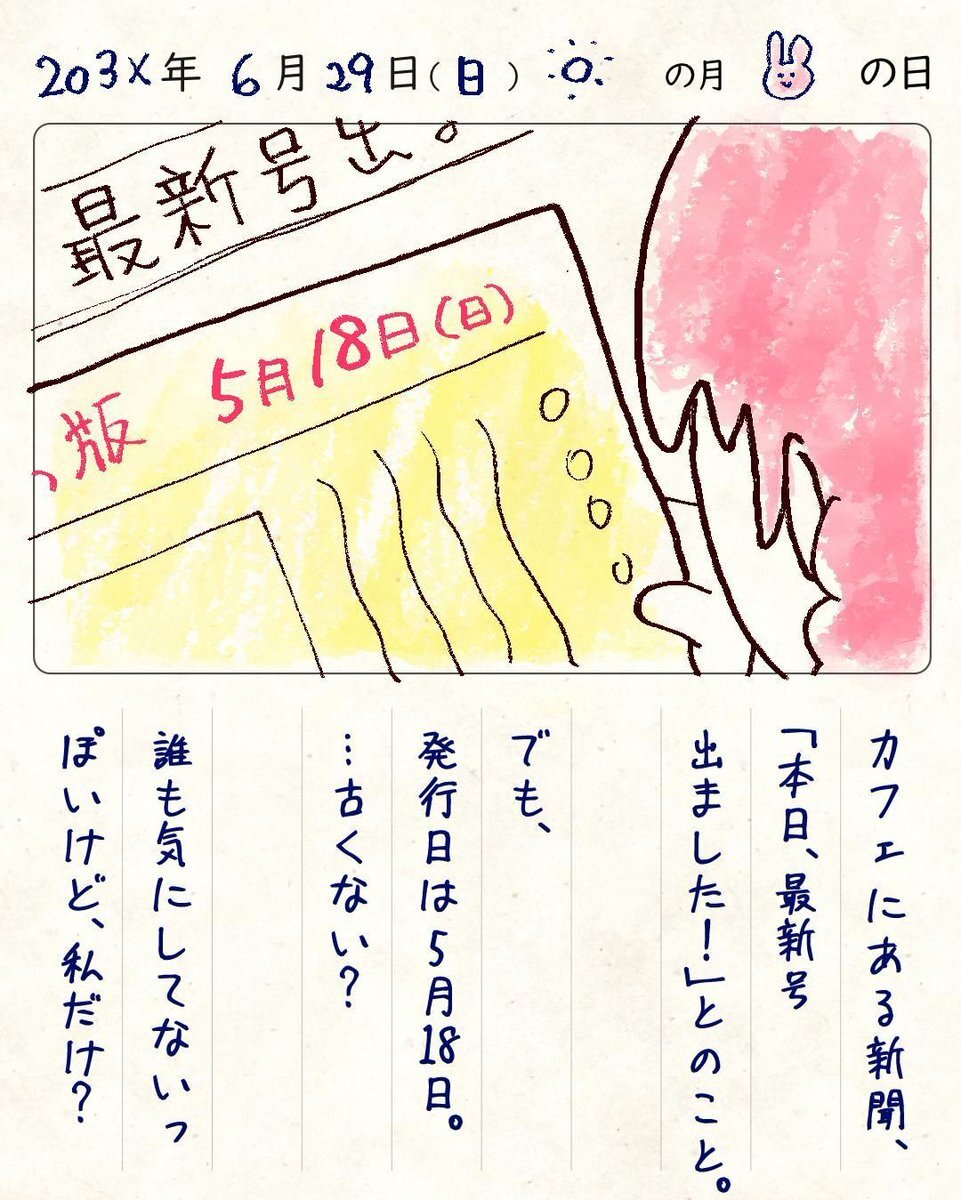 203X年 6月29日(日) の月 の日
最新号出。
、版 5月18日(日)
カフェにある新聞、
「本日、最新号
出ました!」とのこと。
でも、
発行日は5月18日。
…古くない?
誰も気にしてないっ
ぽいけど、私だけ?